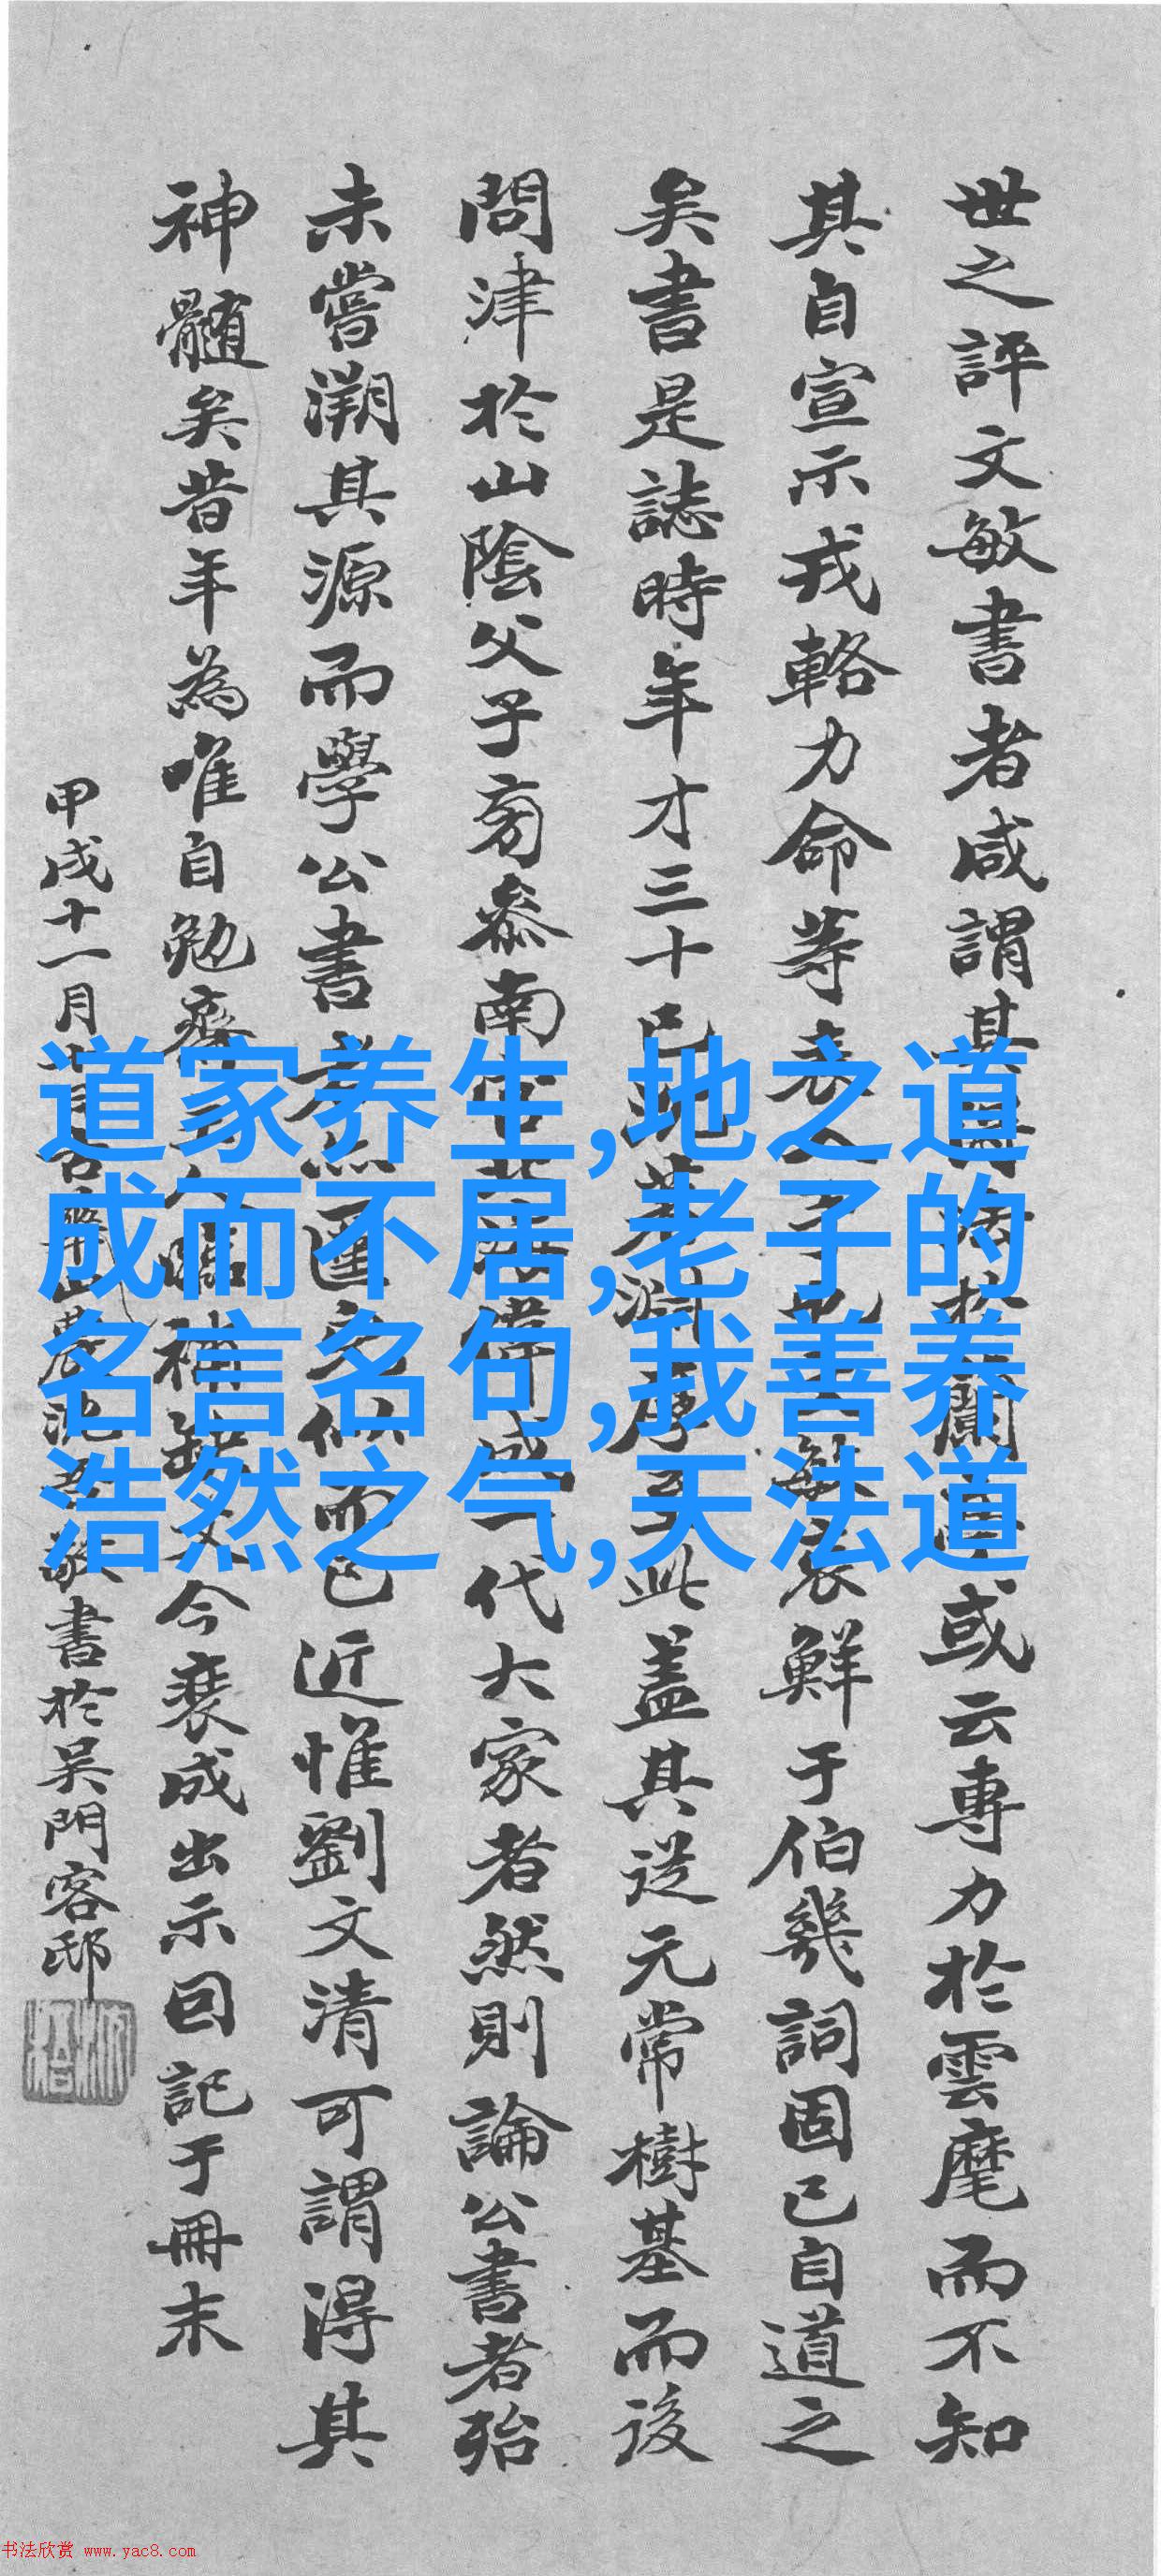 世之評文敏書者咸謂其 或云專力於雲麾而不知
其自宣示戎輅力命等表 鮮于伯幾詞固已自道之
矣書是誌時年才三十已 此蓋其從元常樹基而後
問津於山陰父子旁參南宮 一代大家者然則論公書者殆
未嘗溯其源而學公書者 而已近惟劉文清可謂得其
神髓矣昔年為唯自勉齋 今裝成出示因記于冊末
甲戌十一月 書於吴門客邸
道家养生,地之道
成而不居,老子的
名言名句,我善养
浩然之气,天法道
书法欣赏 www.yac8.com